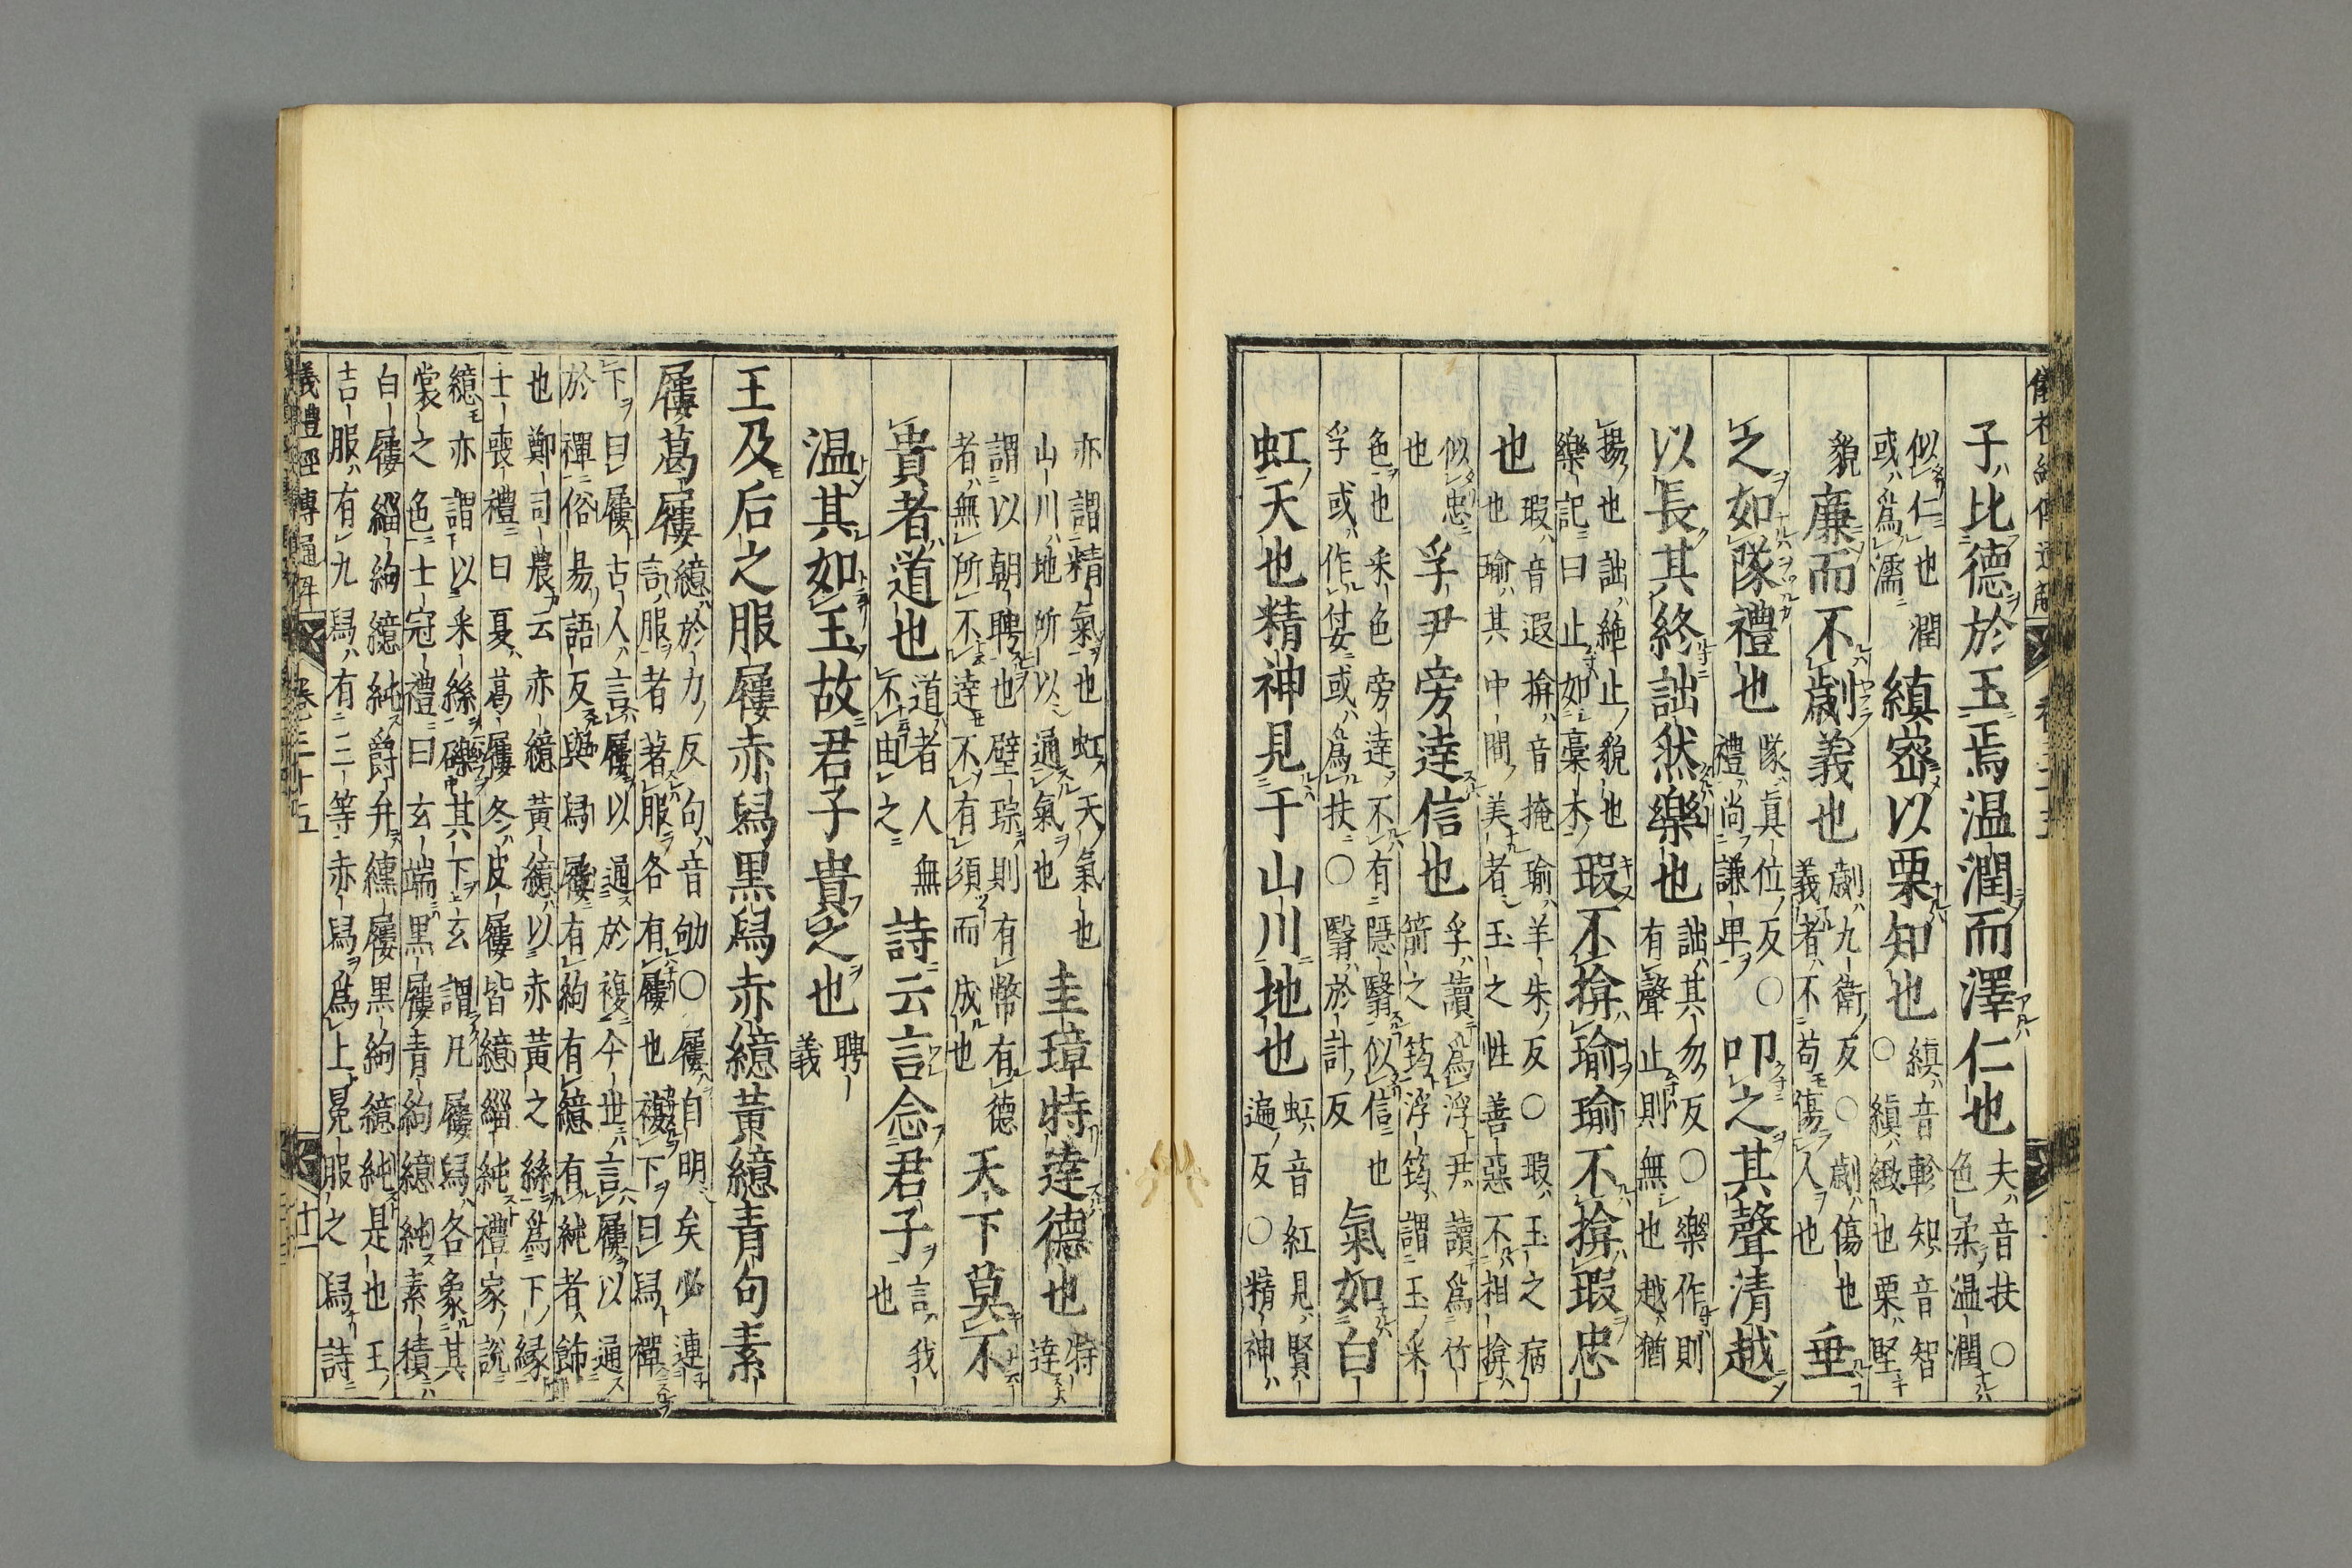 儀禮經傳通解
子比德於玉焉温潤而澤仁也夫音扶○色柔温潤
似仁也潤或爲濡縝宻以栗知也縝音軫知音智○縝緻也栗堅
貌廉而不劌義也劌九衛反○劌傷也義者不苟傷人也垂
之如隊禮也隊真位反○禮尚謙卑叩之其聲清越
以長其終詘然樂也詘其勿反○樂作則有聲止則無也越猶
揚也詘絶止貌也樂記曰止如槀木瑕不揜瑜瑜不揜瑕忠
也瑕音遐揜音掩瑜羊朱反○瑕玉之病也瑜其中間美者玉之性善惡不相揜
似忠也孚尹旁達信也孚讀爲浮尹讀爲竹箭之筠浮筠謂玉采
色也采色旁達不有隱翳似信也孚或作或爲扶○翳於計反氣如白
虹天也精神見于山川地也虹音紅見賢遍反○精神
亦謂精氣也虹天氣也山川地所以通氣也圭璋特達德也特達
謂以朝聘也璧琮則有幣有德者無所不達不有須而成也天下莫不
貴者道也道者人無不由之詩云言念君子言我也
温其如玉故君子貴之也聘義
王及后之服屨赤舄黒舄赤繶黃繶青句素
屨葛屨繶於力反句音劬○屨自明矣必連言服者著服各有屨也複下曰舄禪
下曰屨古人言屨以通於複今世言屨以通於禪俗易語反與舄屨有絇有繶有純者飾
也鄭司農云赤繶黃繶以赤黃之絲爲下緣士喪禮曰夏葛屨冬皮屨皆繶緇純禮家說
繶亦謂以采絲礫其下玄謂凡屨舄各象其裳之色士冠禮曰玄端黒屨青絇繶純素積
白屨緇絇繶純爵弁纁屨黒絇繶純是也王吉服有九舄有三等赤舄爲上冕服之舄詩
儀禮經傳通解 卷二十五 十二